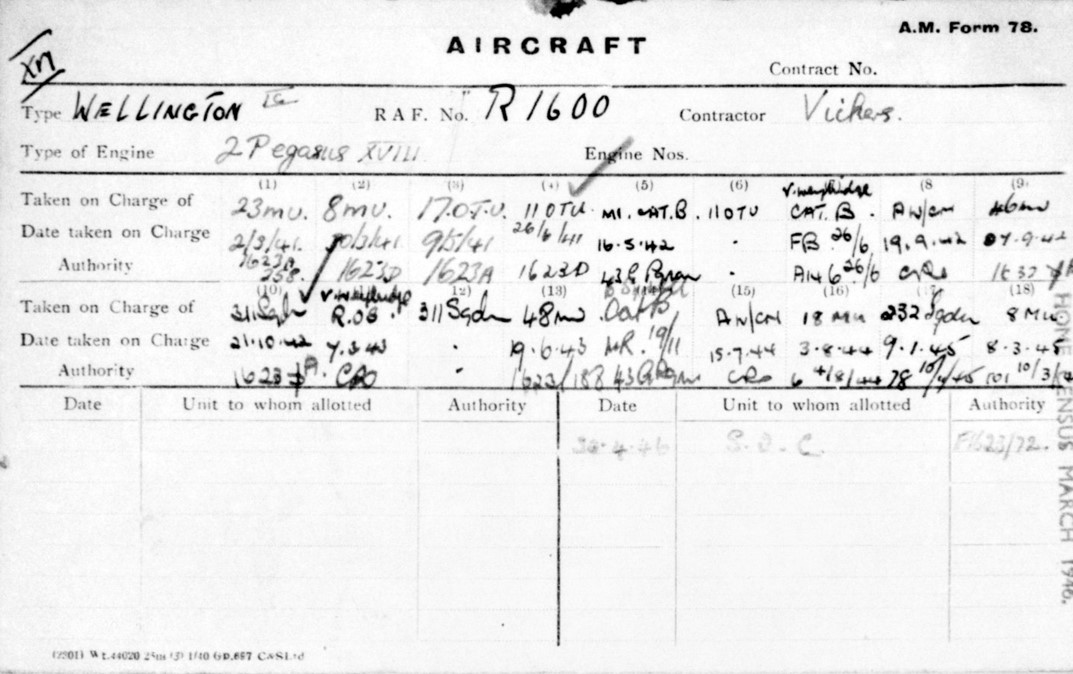 A.M. Form 78.
AIRCRAFT
XM
Contract No.
Type WELLINGTON Ic R.A.F. No. R1600 Contractor Vickers.
Type of Engine 2 Pegasus XVIII Engine Nos.
(1) (2) (3) (4) (5) (6) (8 (9)
Taken on Charge of 23MU. 8MU. 17.O.T.U. 11OTU. MI. CAT.B. 11OTU V.Weybridge CAT. B. AW/CN 46MU
Date taken on Charge 2/3/41. 10/3/41. 9/5/41 26/6/41 16.5.42 " FB 26/6 19.9.42 27.9.42
Authority 1623D 1623A 1623D 43 G 26/6 CRO
(10) 12) (13) (15) (16) (17) (18)
Taken on Charge of 311 Sqdn V.Weybridge R.OS. 311 Sqdn 48MU Cat B AW/CN 18 MU 232 Sqdn 8 MU
Date taken on Charge 21.10.42 7.3.43 " 19.6.43 MR. 19/11 15.7.44 3.8.44 9.1.45 8.3.45
Authority CRO " 1623/188 43 G CRO 6 4/8/44 78 10/1/45 10/3/
Date Unit to whom allotted Authority Date Unit to whom allotted Authority
30.4.46 S.O.C. F1623/72.
HONE CENSUS MARCH 1946.
(2301) Wt.44020 25m (3) 1/40 GD.697 C&SLtd